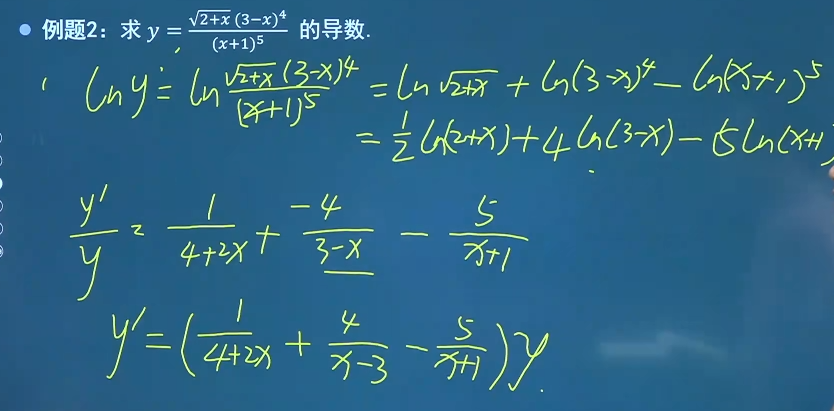 例题2：求 y = √(2+x) (3−x)^4 / (x+1)^5 的导数.
ln y = ln √(2+x) (3−x)^4 / (x+1)^5 = ln √(2+x) + ln(3−x)^4 − ln(x+1)^5
= 1/2 ln(2+x) + 4 ln(3−x) − 5 ln(x+1)
y′/y = 1/(4+2x) + −4/(3−x) − 5/(x+1)
y′ = (1/(4+2x) + 4/(x−3) − 5/(x+1)) y.